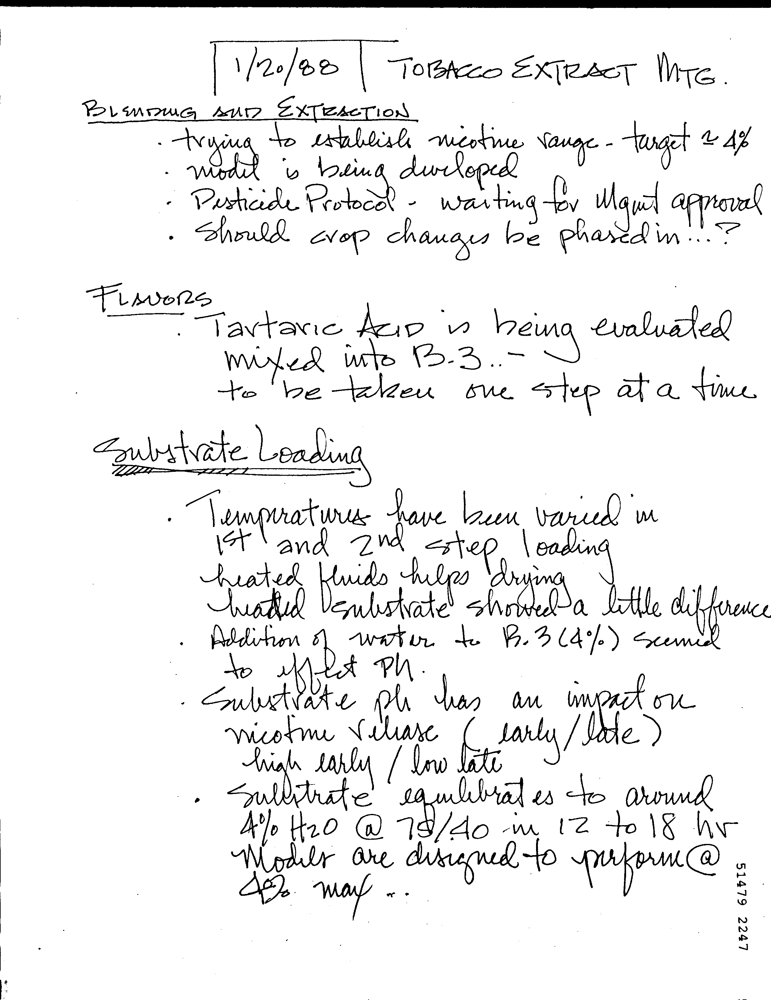 1/20/88 TOBACCO EXTRACT MTG.
BLENDING AND EXTRACTION
· trying to establish nicotine range - target ≃ 4%
· model is being developed
· Pesticide Protocol - waiting for Mgmt approval
· Should crop changes be phased in...?
FLAVORS
· Tartaric ACID is being evaluated
mixed into B-3..-
to be taken one step at a time
Substrate Loading
· Temperatures have been varied in
1st and 2nd step loading
heated fluids helps drying
heated substrate showed a little difference
· Addition of water to B.3 (4%) seemed
to effect Ph.
· Substrate ph has an impact on
nicotine release (early/late)
high early / low late
· Substrate equilibrates to around
4% H2O @ 75/40 in 12 to 18 hr
Models are designed to perform @
4% max ..
51479 2247